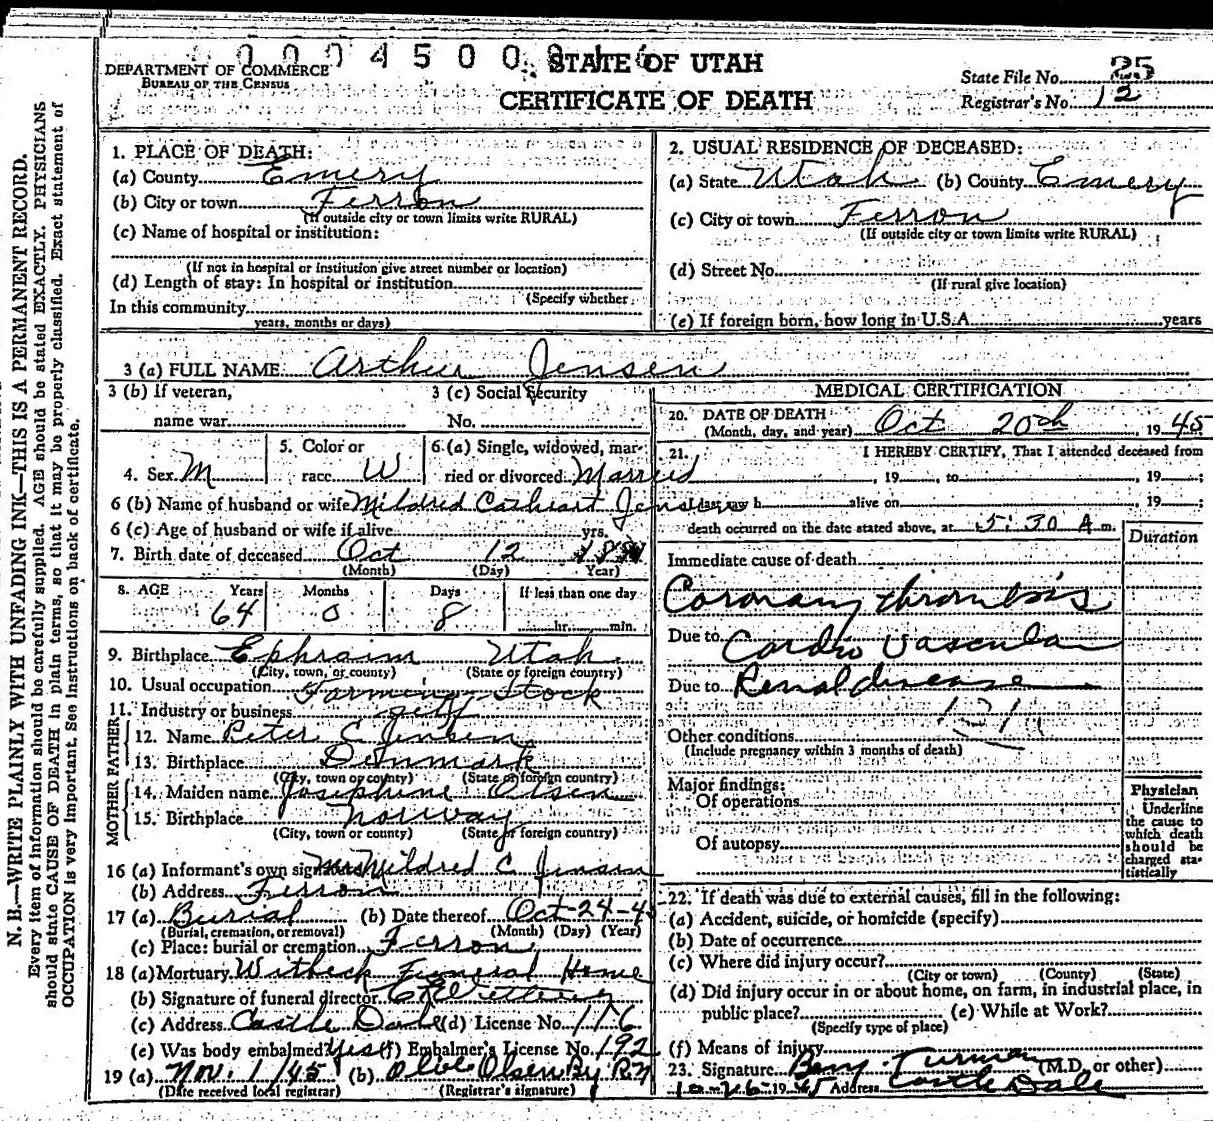 0 0 0 4 5 0 0
DEPARTMENT OF COMMERCE
BUREAU OF THE CENSUS
STATE OF UTAH
CERTIFICATE OF DEATH
State File No. 25
Registrar's No. 12
N. B.—WRITE PLAINLY WITH UNFADING INK—THIS IS A PERMANENT RECORD.
Every item of information should be carefully supplied. AGE should be stated EXACTLY. PHYSICIANS
should state CAUSE OF DEATH in plain terms, so that it may be properly classified. Exact statement of
OCCUPATION is very important. See instructions on back of certificate.
1. PLACE OF DEATH:
(a) County Emery
(b) City or town Ferron
(If outside city or town limits write RURAL)
(c) Name of hospital or institution:
(If not in hospital or institution give street number or location)
(d) Length of stay: In hospital or institution
(Specify whether
In this community
years, months or days)
2. USUAL RESIDENCE OF DECEASED:
(a) State Utah (b) County Emery
(c) City or town Ferron
(If outside city or town limits write RURAL)
(d) Street No.
(If rural give location)
(e) If foreign born, how long in U.S.A. years
3 (a) FULL NAME Arthur Jensen
3 (b) If veteran,
name war
3 (c) Social Security
No.
4. Sex M
5. Color or
race W
6 (a) Single, widowed, mar-
ried or divorced Married
6 (b) Name of husband or wife Mildred Cathcart Jensen
6 (c) Age of husband or wife if alive yrs.
7. Birth date of deceased Oct 12
(Month) (Day) Year)
8. AGE Years Months Days If less than one day
64 0 8 hr. min.
9. Birthplace Ephraim Utah
(City, town, or county) (State or foreign country)
10. Usual occupation Farming Stock
11. Industry or business self
FATHER
12. Name Peter C. Jensen
13. Birthplace Denmark
(City, town or county) (State or foreign country)
MOTHER
14. Maiden name Josephine Olsen
15. Birthplace Norway
(City, town or county) (State or foreign country)
16 (a) Informant's own Mrs Mildred C Jensen
(b) Address Ferron
17 (a) Burial (b) Date thereof Oct-24-45
(Burial, cremation, or removal) (Month) (Day) (Year)
(c) Place: burial or cremation Ferron
18 (a) Mortuary Witbeck Funeral Home
(b) Signature of funeral director
(c) Address Castle Dale (d) License No. 116
(e) Was body embalmed? Yes (f) Embalmer's License No. 192
19 (a) Nov. 1/45 (b) Olsen By RN
(Date received local registrar) (Registrar's signature)
MEDICAL CERTIFICATION
20. DATE OF DEATH
(Month, day, and year) Oct 20th, 1945
21. I HEREBY CERTIFY, That I attended deceased from
, 19 , to , 19 ;
I last saw h alive on , 19 ;
death occurred on the date stated above, at 5:30 A m.
Duration
Immediate cause of death
Coronary thrombosis
Due to Cardio Vascular
Due to Renal disease
131
Other conditions
(Include pregnancy within 3 months of death)
Major findings:
Of operations
Of autopsy
Physician
Underline
the cause to
which death
should be
charged sta-
tistically
22. If death was due to external causes, fill in the following:
(a) Accident, suicide, or homicide (specify)
(b) Date of occurrence
(c) Where did injury occur?
(City or town) (County) (State)
(d) Did injury occur in or about home, on farm, in industrial place, in
public place? (e) While at Work?
(Specify type of place)
(f) Means of injury
23. Signature Turman (M.D. or other)
10-26-1945 Address Castle Dale